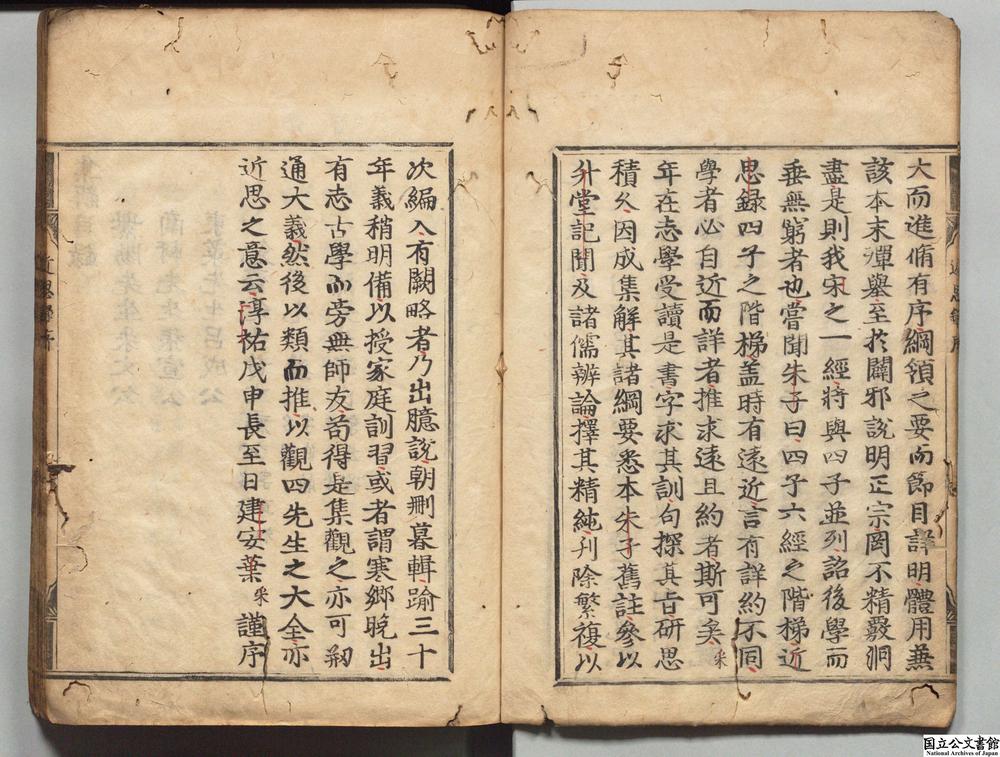 大而進脩有序綱領之要而節目詳明體用兼
該本末殫舉至於闢邪說明正宗罔不精覈洞
盡是則我宋之一經將與四子並列詔後學而
垂無窮者也嘗聞朱子曰四子六經之階梯近
思録四子之階梯盖時有遠近言有詳約不同
學者必自近而詳者推求遠且約者斯可矣采
年在志學受讀是書字求其訓句探其旨研思
積久因成集解其諸綱要悉本朱子舊註參以
升堂記聞及諸儒辨論擇其精純刋除繁複以
次編入有闕略者乃出臆說朝刪暮輯踰三十
年義稍明備以授家庭訓習或者謂寒鄉晚出
有志古學而旁無師友苟得是集觀之亦可刱
通大義然後以類而推以觀四先生之大全亦
近思之意云淳祐戊申長至日建安葉采謹序
近思録序
国立公文書館
National Archives of Japan